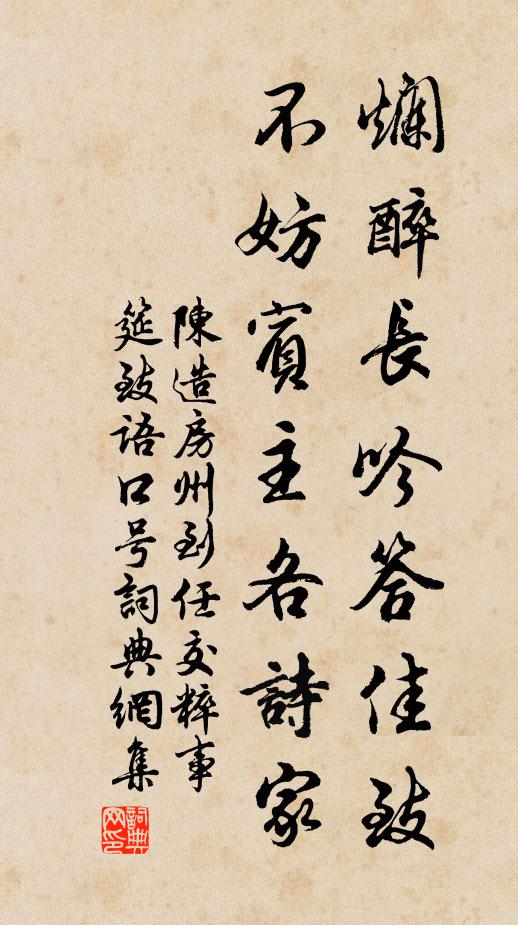 爛醉長吟答佳致
不妨賓主各詩家
陳造房州到任交粹事
筵致語口号詞典網集
詞典
网印